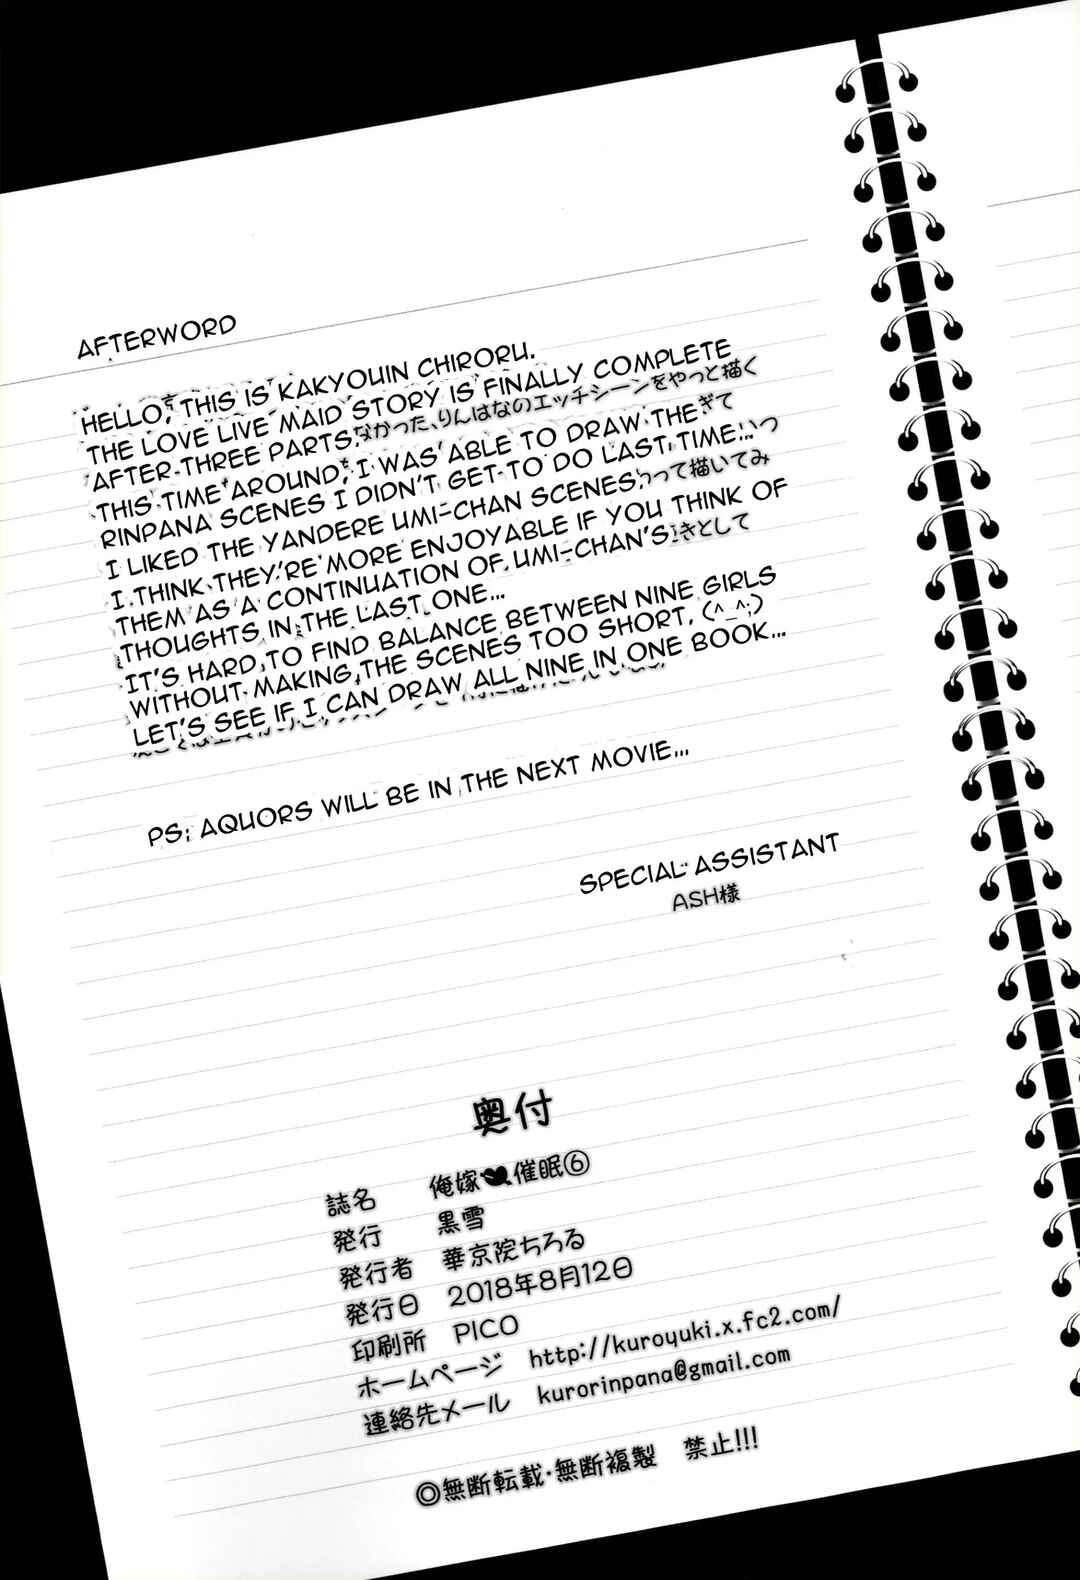 AFTERWORD
HELLO, THIS IS KAKYOUIN CHIRORU.
THE LOVE LIVE MAID STORY IS FINALLY COMPLETE
AFTER THREE PARTS.
なかった、りんぱなのエッチシーンをやっと描く
THIS TIME AROUND, I WAS ABLE TO DRAW THE
ぎて
RINPANA SCENES I DIDN'T GET TO DO LAST TIME...
いつ
I LIKED THE YANDERE UMI-CHAN SCENES.
って描いてみ
I THINK THEY'RE MORE ENJOYABLE IF YOU THINK OF
THEM AS A CONTINUATION OF UMI-CHAN'S
きとして
THOUGHTS IN THE LAST ONE...
IT'S HARD TO FIND BALANCE BETWEEN NINE GIRLS
WITHOUT MAKING THE SCENES TOO SHORT. (^_^;)
LET'S SEE IF I CAN DRAW ALL NINE IN ONE BOOK...
PS; AQUORS WILL BE IN THE NEXT MOVIE...
SPECIAL ASSISTANT
ASH様
奥付
誌名 俺嫁催眠⑥
発行 黒雪
発行者 華京院ちろる
発行日 2018年8月12日
印刷所 PICO
ホームページ http://kuroyuki.x.fc2.com/
連絡先メール kurorinpana@gmail.com
◎無断転載・無断複製 禁止!!!